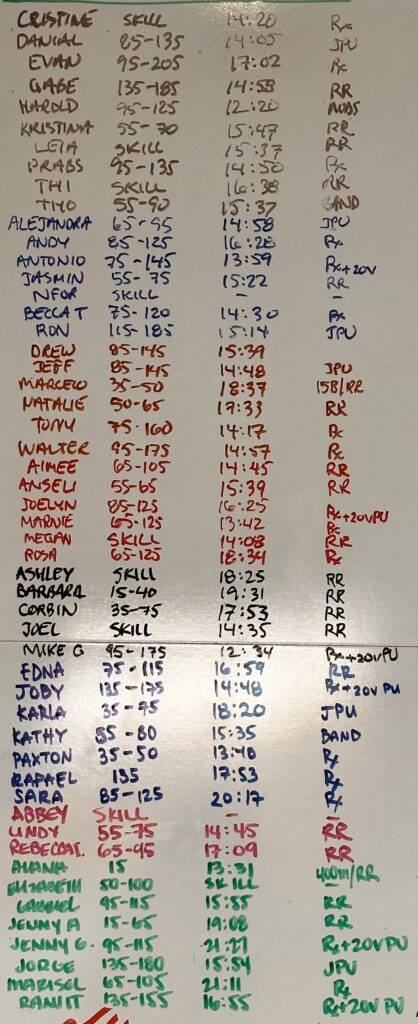 CRISTINE SKILL 14:20 Rx
DANIAL 85-135 14:05 JPU
EVAN 95-205 17:02 Rx
GABE 135-185 14:58 RR
HAROLD 95-125 12:20 MODS
KRISTINA 55-70 15:47 RR
LEIA SKILL 15:37 RR
PRABS 95-135 14:50 Rx
THI SKILL 16:38 RR
TIMO 55-90 15:37 BAND
ALEJANDRA 65-95 14:58 JPU
ANDY 85-125 16:28 Rx
ANTONIO 75-145 13:59 Rx+20V
JASMIN 55-75 15:22 RR
NFOR SKILL - -
BECCA T 75-120 14:30 Rx
RON 115-185 15:14 JPU
DREW 85-145 15:39
JEFF 85-145 14:48 JPU
MARCELO 35-50 18:37 15B/RR
NATALIE 50-65 17:33 RR
TONY 75-160 14:17 Rx
WALTER 95-175 14:57 Rx
AIMEE 65-105 14:45 RR
ANSELI 55-65 15:39 RR
JOELYN 85-125 16:25 Rx+20VPU
MARNIE 65-125 13:42 Rx
MEGAN SKILL 14:08 RR
ROSA 65-125 18:34 Rx
ASHLEY SKILL 18:25 RR
BARBARA 15-40 19:31 RR
CORBIN 35-75 17:53 RR
JOEL SKILL 14:35 RR
MIKE G 95-175 12:34 Rx+20VPU
EDNA 75-115 16:59 RR
JOBY 135-175 14:48 Rx+20V PU
KARLA 35-95 18:20 JPU
KATHY 55-80 15:35 BAND
PAXTON 35-50 13:48 Rx
RAFAEL 135 17:53 Rx
SARA 85-125 20:17 Rx
ABBEY SKILL - -
LINDY 55-75 14:45 RR
REBECCA T. 65-95 17:09 RR
AHANA 15 13:31 400m/RR
ELIZABETH 50-100 SKILL -
GABRIEL 95-115 15:55 RR
JENNY A 15-65 19:08 RR
JENNY G. 95-115 21:27 Rx+20VPU
JORGE 135-180 15:54 JPU
MARISEL 65-105 21:11 Rx
RANJIT 135-155 16:55 Rx+20V PU